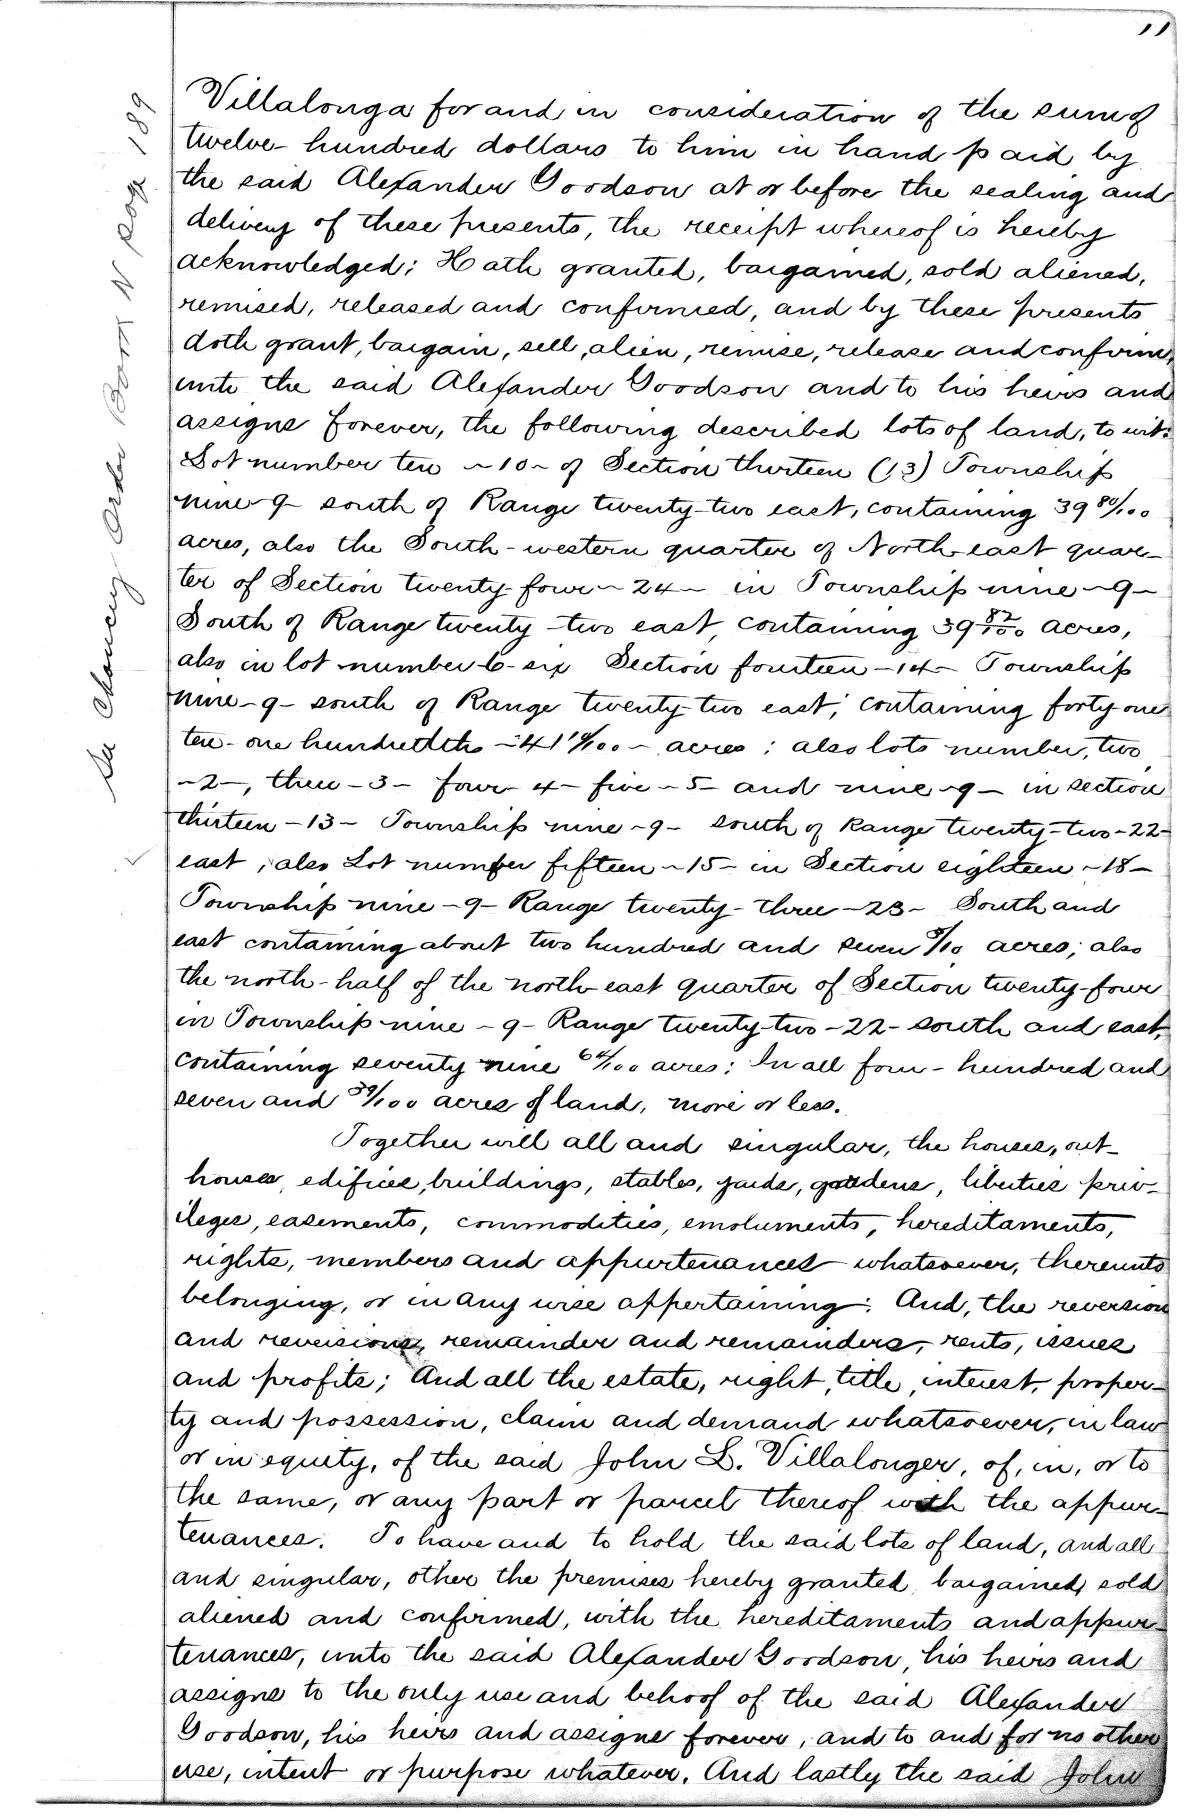 11
See Chancery Order Book N page 189
Villalonga for and in consideration of the sum of
twelve hundred dollars to him in hand paid by
the said Alexander Goodson at or before the sealing and
delivery of these presents, the receipt whereof is hereby
acknowledged; Hath granted, bargained, sold aliened,
remised, released and confirmed, and by these presents
doth grant, bargain, sell, alien, remise, release and confirm,
unto the said Alexander Goodson and to his heirs and
assigns forever, the following described lots of land, to wit:
Lot number ten ~10~ of Section thirteen (13) Township
nine-9- south of Range twenty-two east, containing 39 80/100
acres, also the South-western quarter of North-east quar-
ter of Section twenty-four ~24~ in Township nine ~9~
South of Range twenty-two east, containing 39 82/100 acres,
also in lot number 6-six Section fourteen -14- Township
nine -9- south of Range twenty-two east; containing forty one
ten-one hundredths -41 10/100- acres; also lots number, two
-2-, three -3- four 4- five -5- and nine -9- in section
thirteen -13- Township nine -9- south of Range twenty-two -22-
east, also Lot number fifteen -15- in Section eighteen -18-
Township nine -9- Range twenty-three -23- South and
east containing about two hundred and seven 9/10 acres; also
the north-half of the north-east quarter of Section twenty-four
in Township nine -9- Range twenty-two -22- south and east,
containing seventy nine 64/100 acres: In all four-hundred and
seven and 39/100 acres of land, more or less.
Together will all and singular, the houses, out-
houses, edifices, buildings, stables, yards, gardens, liberties priv-
ileges, easements, commodities, emoluments, hereditaments,
rights, members and appurtenances whatsoever, thereunto
belonging, or in any wise appertaining; And, the reversion
and reversions, remainder and remainders, rents, issues
and profits; And all the estate, right, title, interest, proper-
ty and possession, claim and demand whatsoever, in law
or in equity, of the said John L. Villalonger, of, in, or to
the same, or any part or parcel thereof with the appur-
tenances. To have and to hold the said lots of land, and all
and singular, other the premises hereby granted, bargained, sold
aliened and confirmed, with the hereditaments and appur-
tenances, unto the said Alexander Goodson, his heirs and
assigns to the only use and behoof of the said Alexander
Goodson, his heirs and assigns forever, and to and for no other
use, intent or purpose whatever. And lastly the said John